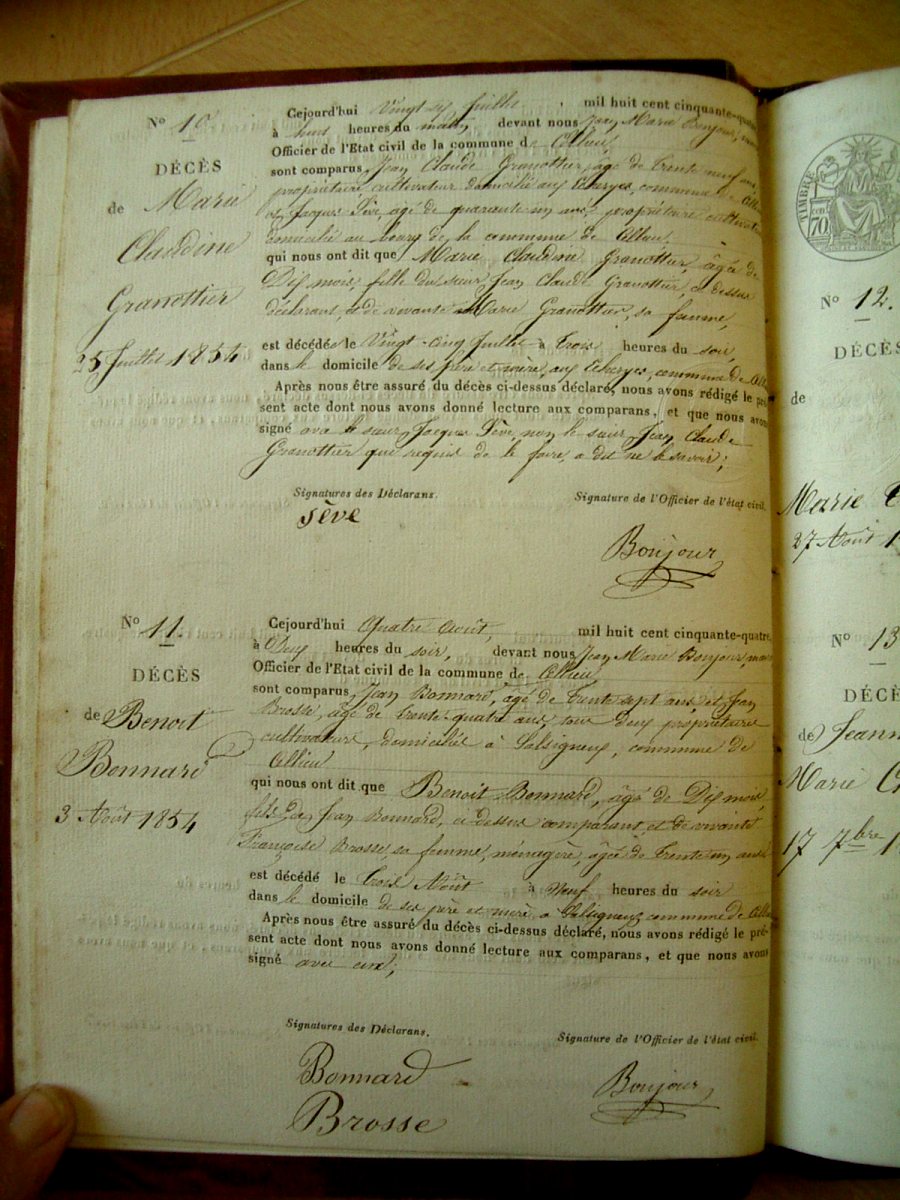 N° 10
DÉCÈS
de Marie
Claudine
Granottier
25 Juillet 1854
Cejourd'hui Vingt six Juillet, mil huit cent cinquante-quatre
à huit heures du matin, devant nous Jean Marie Bonjour,
Officier de l'Etat civil de la commune de Cellieu,
sont comparus Jean Claude Granottier, âgé de trente neuf ans,
propriétaire cultivateur domicilié aux commune de
et Jacques Sève, âgé de quarante un ans, propriétaire cultivateur
domicilié au bourg de la commune de Cellieu,
qui nous ont dit que Marie Claudine Granottier, âgée de
Dix mois, fille du sieur Jean Claude Granottier, ci dessus
déclarant, et de vivante Marie Granottier, sa femme,
est décédée le Vingt-cinq Juillet à trois heures du soir,
dans le domicile de ses père et mère, aux commune de
Après nous être assuré du décès ci-dessus déclaré, nous avons rédigé le pré-
sent acte dont nous avons donné lecture aux comparans, et que nous avons
signé avec le sieur Jacques Sève, non le sieur Jean Claude
Granottier qui requis de le faire, a dit ne le savoir;
Signatures des Déclarans.
Signature de l'Officier de l'état civil.
Sève
Bonjour
N° 11.
DÉCÈS
de Benoit
Bonnard
3 Août 1854
Cejourd'hui Quatre Août, mil huit cent cinquante-quatre,
à Deux heures du soir, devant nous Jean Marie Bonjour, maire
Officier de l'Etat civil de la commune de Cellieu,
sont comparus Jean Bonnard, âgé de trente sept ans, et Jean
Brosse, âgé de trente-quatre ans, tous deux propriétaires
cultivateurs, domiciliés à Salsigneux, commune de
Cellieu
qui nous ont dit que Benoit Bonnard, âgé de Dix mois,
fils de Jean Bonnard, ci dessus comparant, et de vivante
Françoise Brosse, sa femme, ménagère, âgée de trente un ans
est décédé le trois Août à Neuf heures du soir
dans le domicile de ses père et mère, à Salsigneux commune de
Après nous être assuré du décès ci-dessus déclaré, nous avons rédigé le pré-
sent acte dont nous avons donné lecture aux comparans, et que nous avons
signé avec eux;
Signatures des Déclarans.
Signature de l'Officier de l'état civil.
Bonnard
Brosse
Bonjour
TIMBRE
70
N° 12.
DÉCÈS
de
Marie
27 Août
N° 13
DÉCÈ
de Jeann
Marie
17 7bre